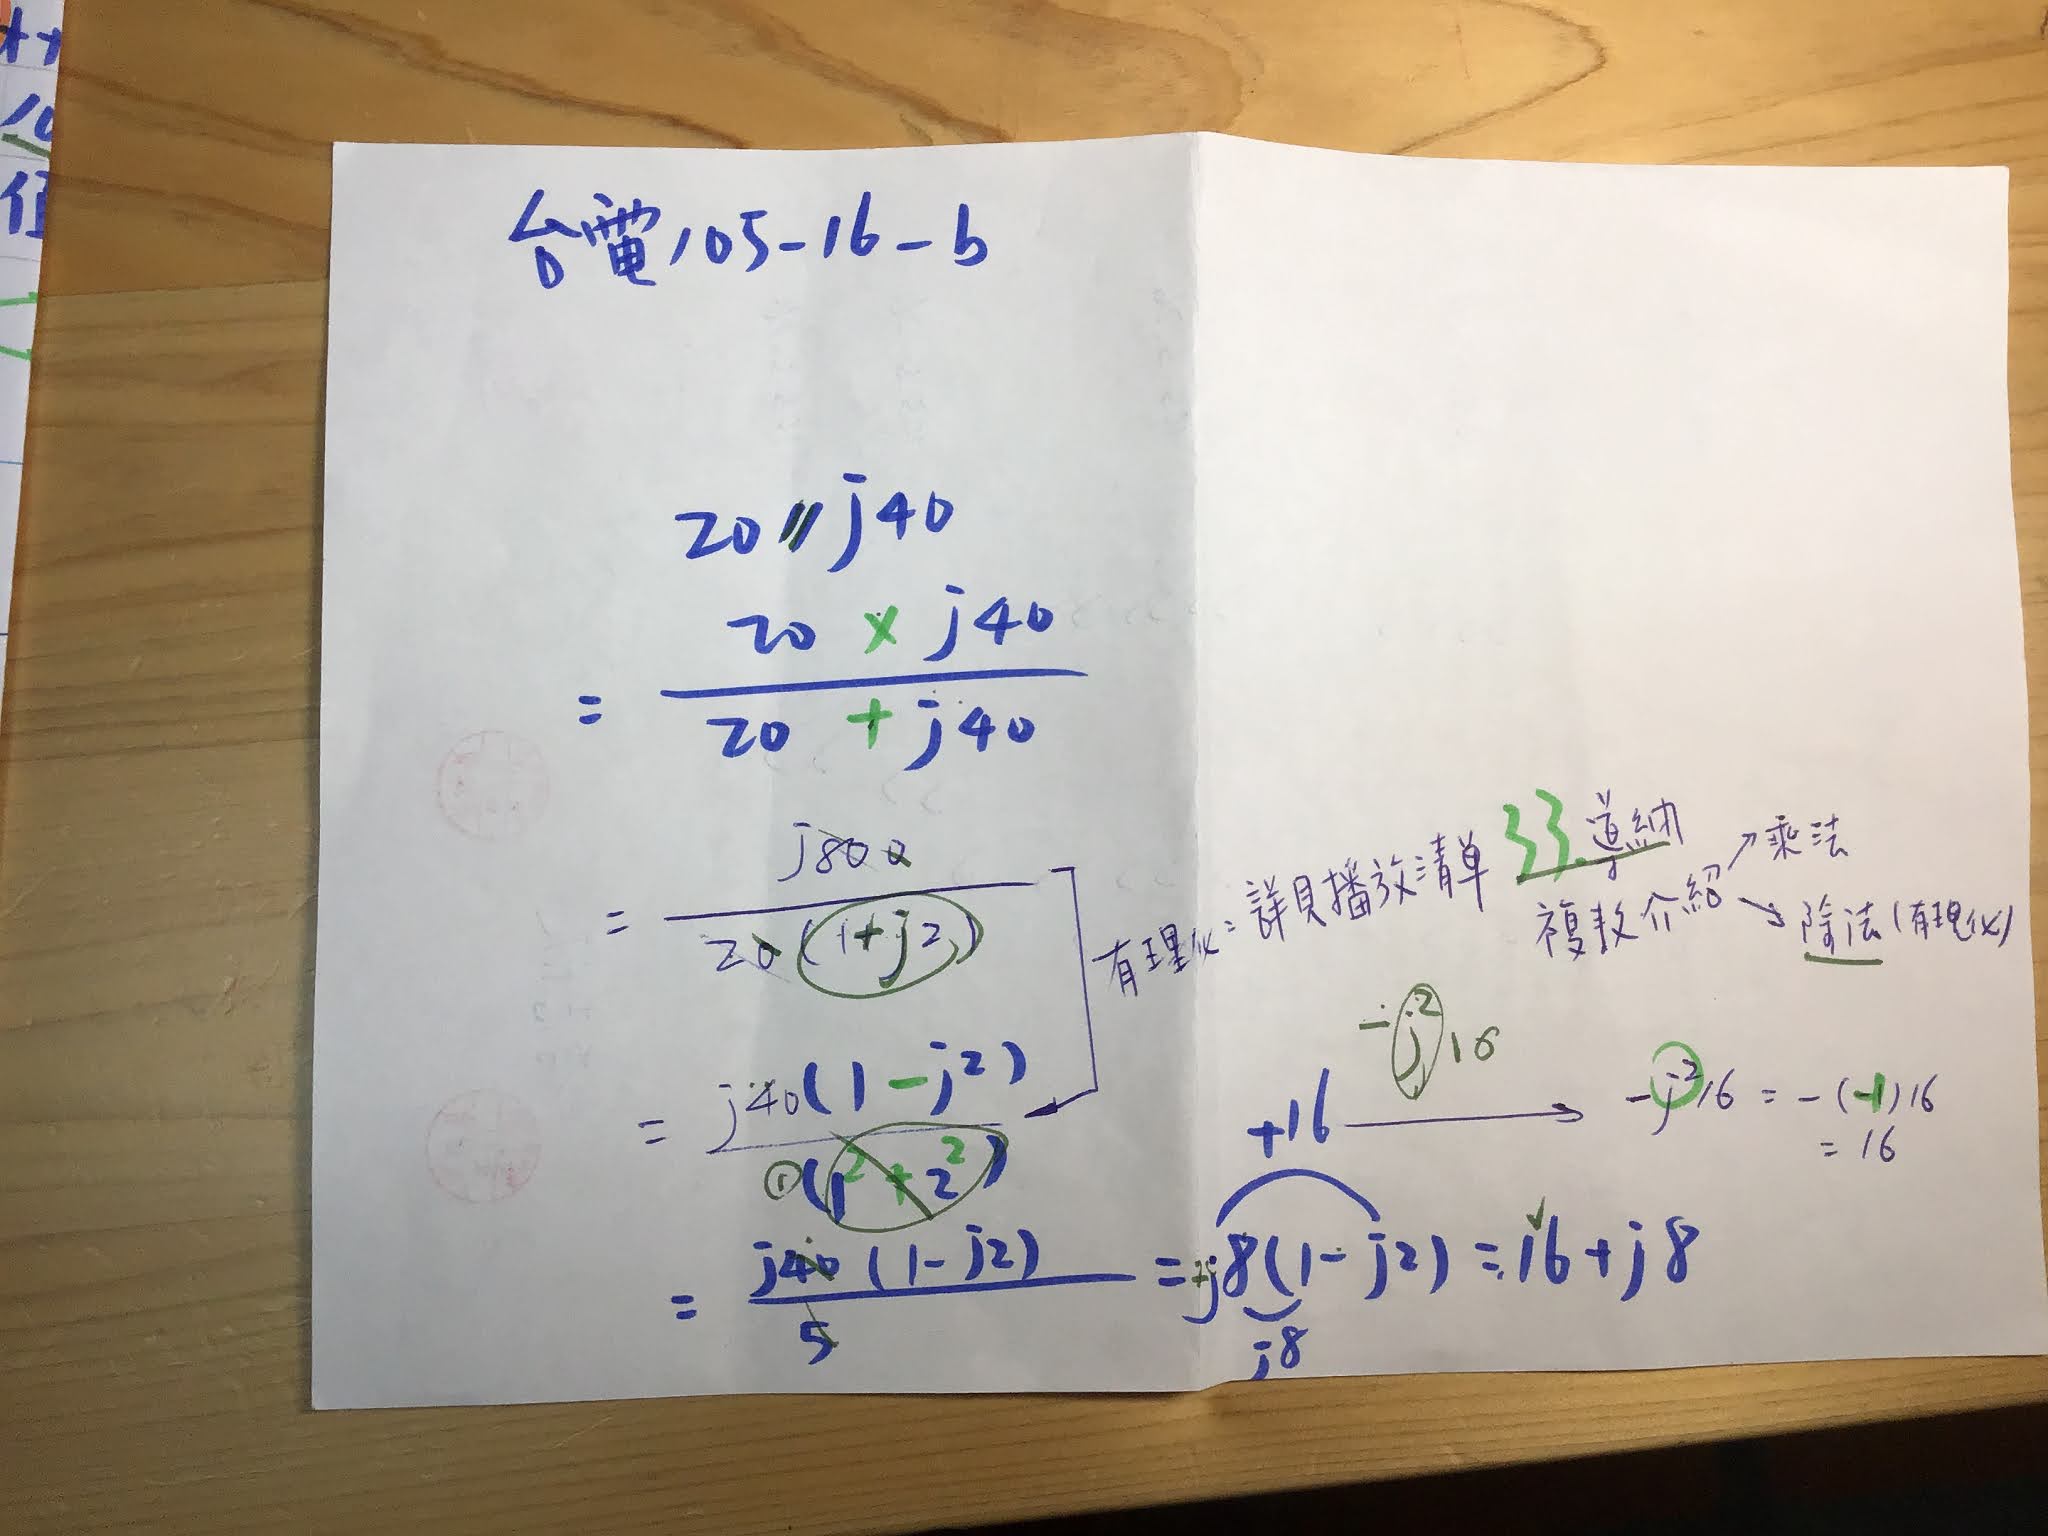 台電105-16-b
20 // j40
= 20 × j40 / 20 + j40
= j800 / 20(1+j2)
有理化:詳見播放清單 33.導納
複数介紹 → 乘法
→ 除法(有理化)
= j40(1-j2) / ①(1²+2²)
-j²16
+16 → -j²16 = -(-1)16
= 16
= j40(1-j2) / 5 = +j8(1-j2) = 16+j8
j8